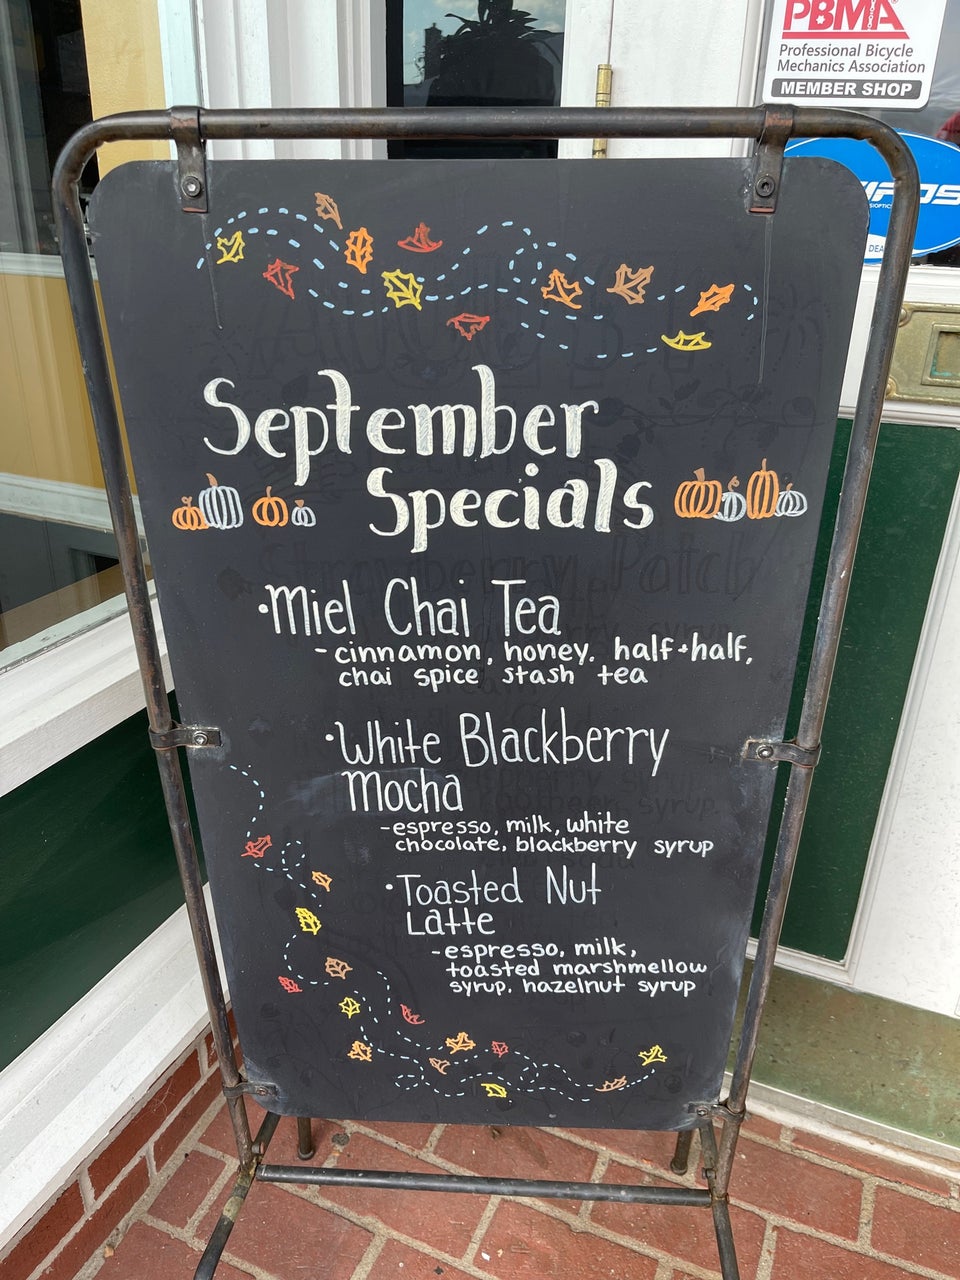 PBMA
Professional Bicycle
Mechanics Association
MEMBER SHOP
September
Specials
•Miel Chai Tea
-cinnamon, honey, half+half,
chai spice stash tea
•White Blackberry
Mocha
-espresso, milk, white
chocolate, blackberry syrup
•Toasted Nut
Latte
-espresso, milk,
toasted marshmellow
syrup, hazelnut syrup